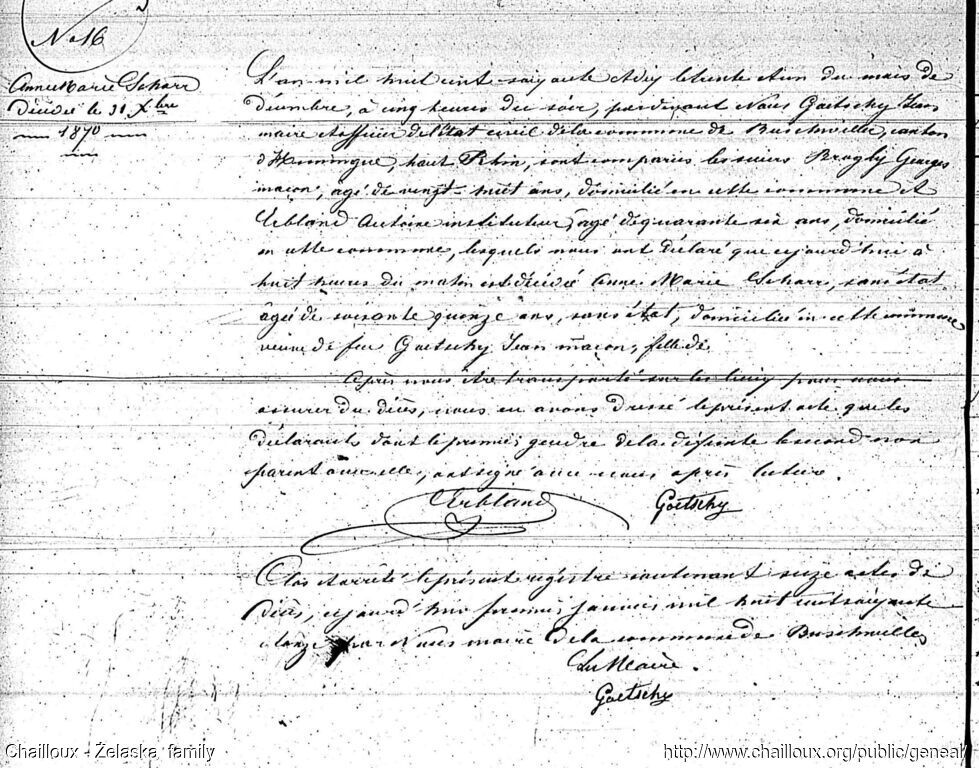 No 16
Anne Marie Scharr
Décédée le 31 Xbre
1870
L'an mil huit cent soixante et dix le trente et un du mois de
Décembre, à cinq heures du soir, pardevant Nous Gaetschy Jean
maire et officier de l'Etat civil de la commune de Buschwiller, canton
d'Huningue, haut Rhin, sont comparus les sieurs Brogly Georges
maçon, agé de vingt-huit ans, domicilié en cette commune et
Erbland Antoine instituteur, agé de quarante six ans, domicilié
en cette commune, lesquels nous ont déclaré que cejourd'hui à
huit heures du matin est décédée Anne Marie Scharr, sans état,
agée de soixante quinze ans, sans état, domiciliée en cette commune
veuve de feu Gaetschy Jean maçon, fille de
Après nous être transporté sur les lieux pour nous
assurer du décès, nous en avons dressé le présent acte que les
déclarants dont le premier gendre de la défunte le second non
parent avec elle, ont signé avec nous après lecture.
Erbland Gaetschy
Clos et arrêté le présent registre contenant seize actes de
décès, cejourd'hui premier janvier mil huit cent soixante
et onze par Nous maire de la commune de Buschwiller
Le Maire.
Gaetschy
Chailloux - Żelaska family
http://www.chailloux.org/public/geneal/